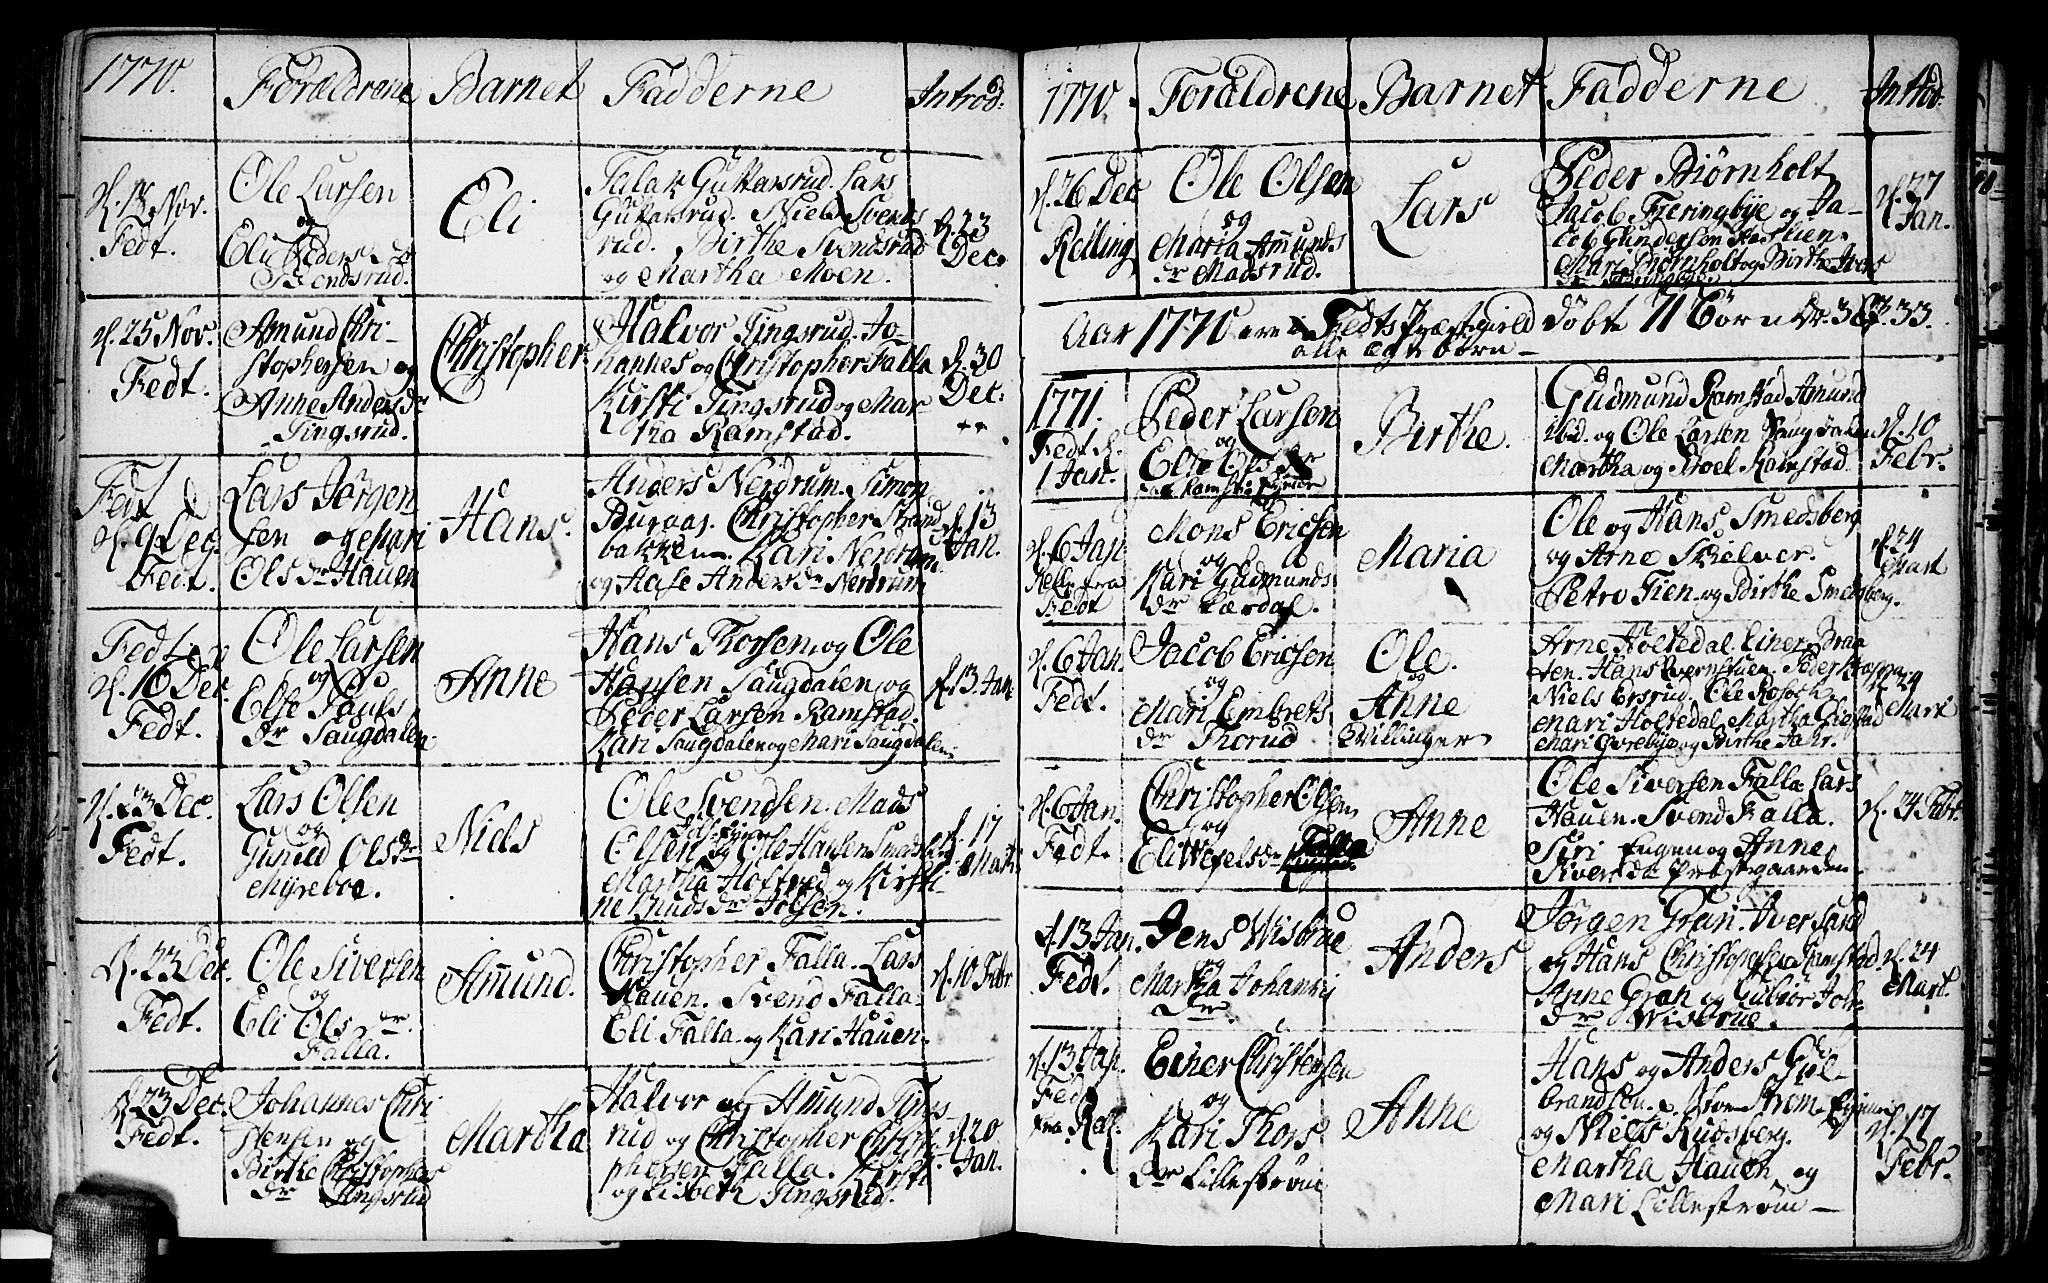 1770.
Forældrene
Barnet
Fadderne
Introd:
d. 18 Nov.
Fedt.
Ole Larsen
og
Eli Peders dr
Svendsrud.
Eli
Gulbrandsrud. Lars
Niels Svends
rud. Birthe Svendsrud
og Martha Moen.
d. 23
Dec.
d. 25 Nov.
Fedt.
Amund Chri-
stophersen og
Anne Anders dr
Tingsrud.
Christopher
Halvor Tingsrud. Jo-
hannes og Christopher Falla
Kirsti Tingsrud og Mar-
tha Ramstad.
d. 30
Dec.
Fedt
d. 9 Dec.
Fedt.
Lars Jørgen
sen og Mari
Ols dr Hauen
Hans.
Anders Nerdrum. Simon
Buraas. Christopher Strand
bakken. Kari Nerdrum
og Aase Anders dr Nerdrum
d. 13
Jan.
d. 16 Dec.
Fedt.
Ole Larsen
og
Else Pauls
dr Saugdalen
Anne
Hans Thorsen og Ole
Hansen Saugdalen og
Peder Larsen Ramstad.
Kari Saugdalen og Mari Saugdalen.
d. 13. Jan
d. 23 Dec.
Fedt.
Lars Olsen
og
Gunild Ols dr
Myreboe.
Niels
Ole Svendsen. Mads
Olsen og Ole Hansen
Martha Hofved og Kirsti-
ne Knuds dr
d. 17
Martz
d. 23 Dec.
Fedt.
Ole Siversen
og
Eli Ols dr
Falla.
Amund.
Christopher Falla. Lars
Hauen. Svend Falla.
Eli Falla og Kari Hauen.
d. 10 Febr.
d. 23 Dec.
Fedt.
Johannes Chri
stensen og
Birthe Christophers
dr Tingsrud
Martha
Halvor og Amund Tings
rud og Christopher Christo
phersen Falla. Kirsti
og Lisbeth Tingsrud.
d. 20
Jan.
1770.
Forældrene
Barnet
Fadderne
Introd.
d. 26 Dec
Reiling
Ole Olsen
og
Maria Amunds
dr Madsrud.
Lars
Peder Biørnholt
Jacob Fieringbye og Ja-
cob Gundersen
Mari Biørnholt og Birthe Ivers
d. 27
Jan.
Aar 1770 ere i Fedts Præstegield døbt 71 Børn
alle ægte børn -
1771.
Fedt d.
1 Jan.
Peder Larsen
og
Else Ols dr
Birthe.
Gudmund Ramstad Amund
ibd. og Ole Larsen Saugdalen
Martha og Ramstad.
d. 10
Febr.
d. 6 Jan
fra
Fedt
Mons Ericsen
og
Kari Gudmunds
dr Lærdal.
Maria
Ole og Hans Smedsberg
og Arne Skielver.
Petro Tien og Birthe Smedsberg.
d. 24
Mart
d. 6 Jan.
Fedt.
Jacob Ericsen
og
Mari Embrets
dr Thorud
Ole.
og
Anne
Tvillinger
Arne Holtedal. Einer Braa
ten. Hans Qvernstuen. Peder
Niels Ersrud. Ole
Mari Holtedal. Martha
Mari Øvrebye og Birthe Jahr.
d. 24
Mart
d. 6 Jan.
Fedt.
Christopher Olsen
og
Eli Wesels dr Falla
Anne
Ole Siversen Falla. Lars
Hauen. Svend Falla.
Siri Eugen og Anne
Sivers dr Præstegaarden.
d. 24 Febr.
d. 13 Jan.
Fedt.
Jens Wisbrue
og
Martha Johannis
dr
Anders
Jørgen Gran. Iver Sand
og Hans Christophersen Ramstad.
Anne Gran og Gubiør Joh.
dr Wisbrue.
d. 24
Mart.
d. 13 Jan.
Fedt
fra
Einer Christensen
og
Kari Thors
dr Lillestrøm
Anne
Hans og Anders Gul-
brandsen.
og Niels Rudsberg.
Martha Hauen og
Mari Lillestrøm -
d. 17
Febr.